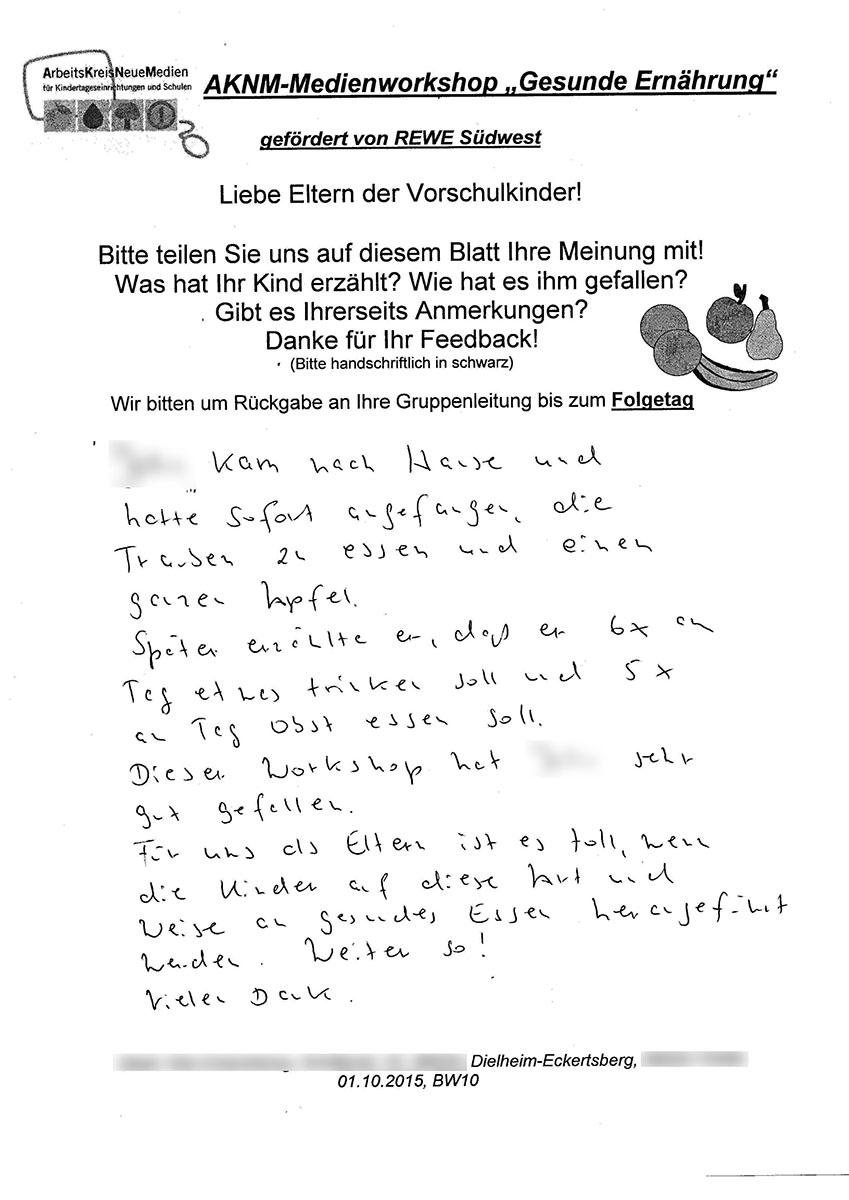 ArbeitsKreisNeueMedien
für Kindertageseinrichtungen und Schulen
AKNM-Medienworkshop „Gesunde Ernährung“
gefördert von REWE Südwest
Liebe Eltern der Vorschulkinder!
Bitte teilen Sie uns auf diesem Blatt Ihre Meinung mit!
Was hat Ihr Kind erzählt? Wie hat es ihm gefallen?
Gibt es Ihrerseits Anmerkungen?
Danke für Ihr Feedback!
(Bitte handschriftlich in schwarz)
Wir bitten um Rückgabe an Ihre Gruppenleitung bis zum Folgetag
kam nach Hause und
hatte sofort angefangen, die
Trauben zu essen und einen
ganzen Apfel.
Später erzählte er, daß er 6x am
Tag etwas trinken soll und 5x
am Tag Obst essen soll.
Dieser Workshop hat sehr
gut gefallen.
Für uns als Eltern ist es toll, wenn
die Kinder auf diese Art und
Weise an gesundes Essen herangeführt
werden. Weiter so!
Vielen Dank.
Dielheim-Eckertsberg,
01.10.2015, BW10